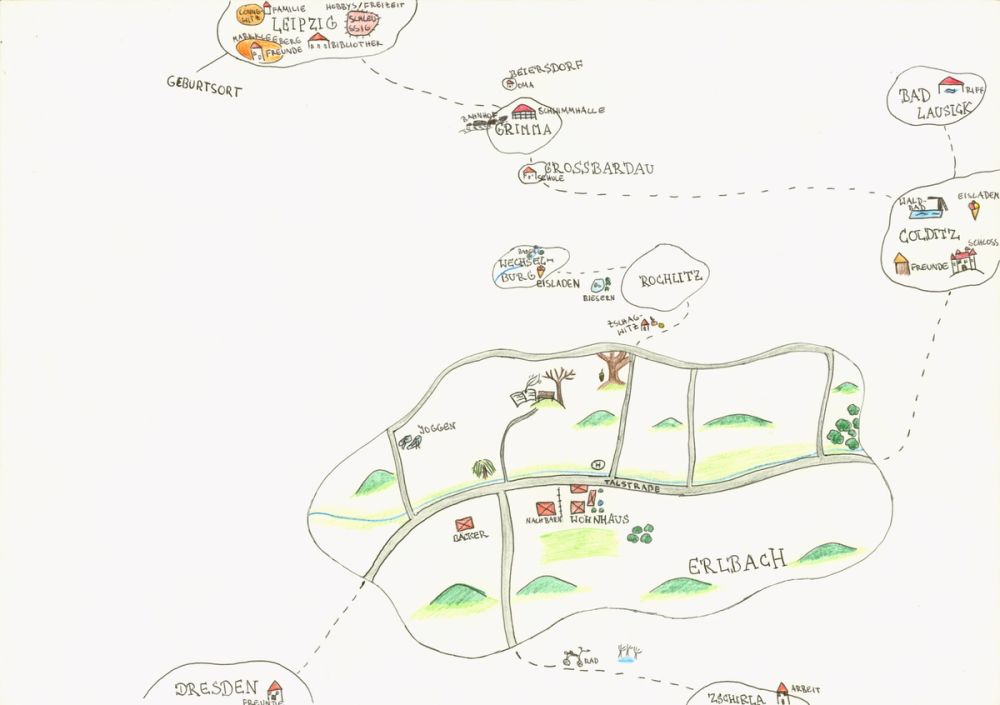 CONNE-
WITZ
FAMILIE
HOBBYS/FREIZEIT
LEIPZIG
SCHLEU-
SSIG
MARKKLEEBERG
FREUNDE
BIBLIOTHEK
GEBURTSORT
BEIERSDORF
OMA
BAHNHOF
SCHWIMMHALLE
GRIMMA
GROSSBARDAU
SCHULE
BAD
LAUSICK
RIFF
WALD-
BAD
EISLADEN
COLDITZ
SCHLOSS
FREUNDE
WECHSEL-
BURG
EISLADEN
BIESERN
ROCHLITZ
ZSCHAG-
WITZ
JOGGEN
H
TALSTRAßE
NACHBARN
WOHNHAUS
BÄCKER
ERLBACH
RAD
DRESDEN
FREUNDE
ZSCHIRLA
ARBEIT